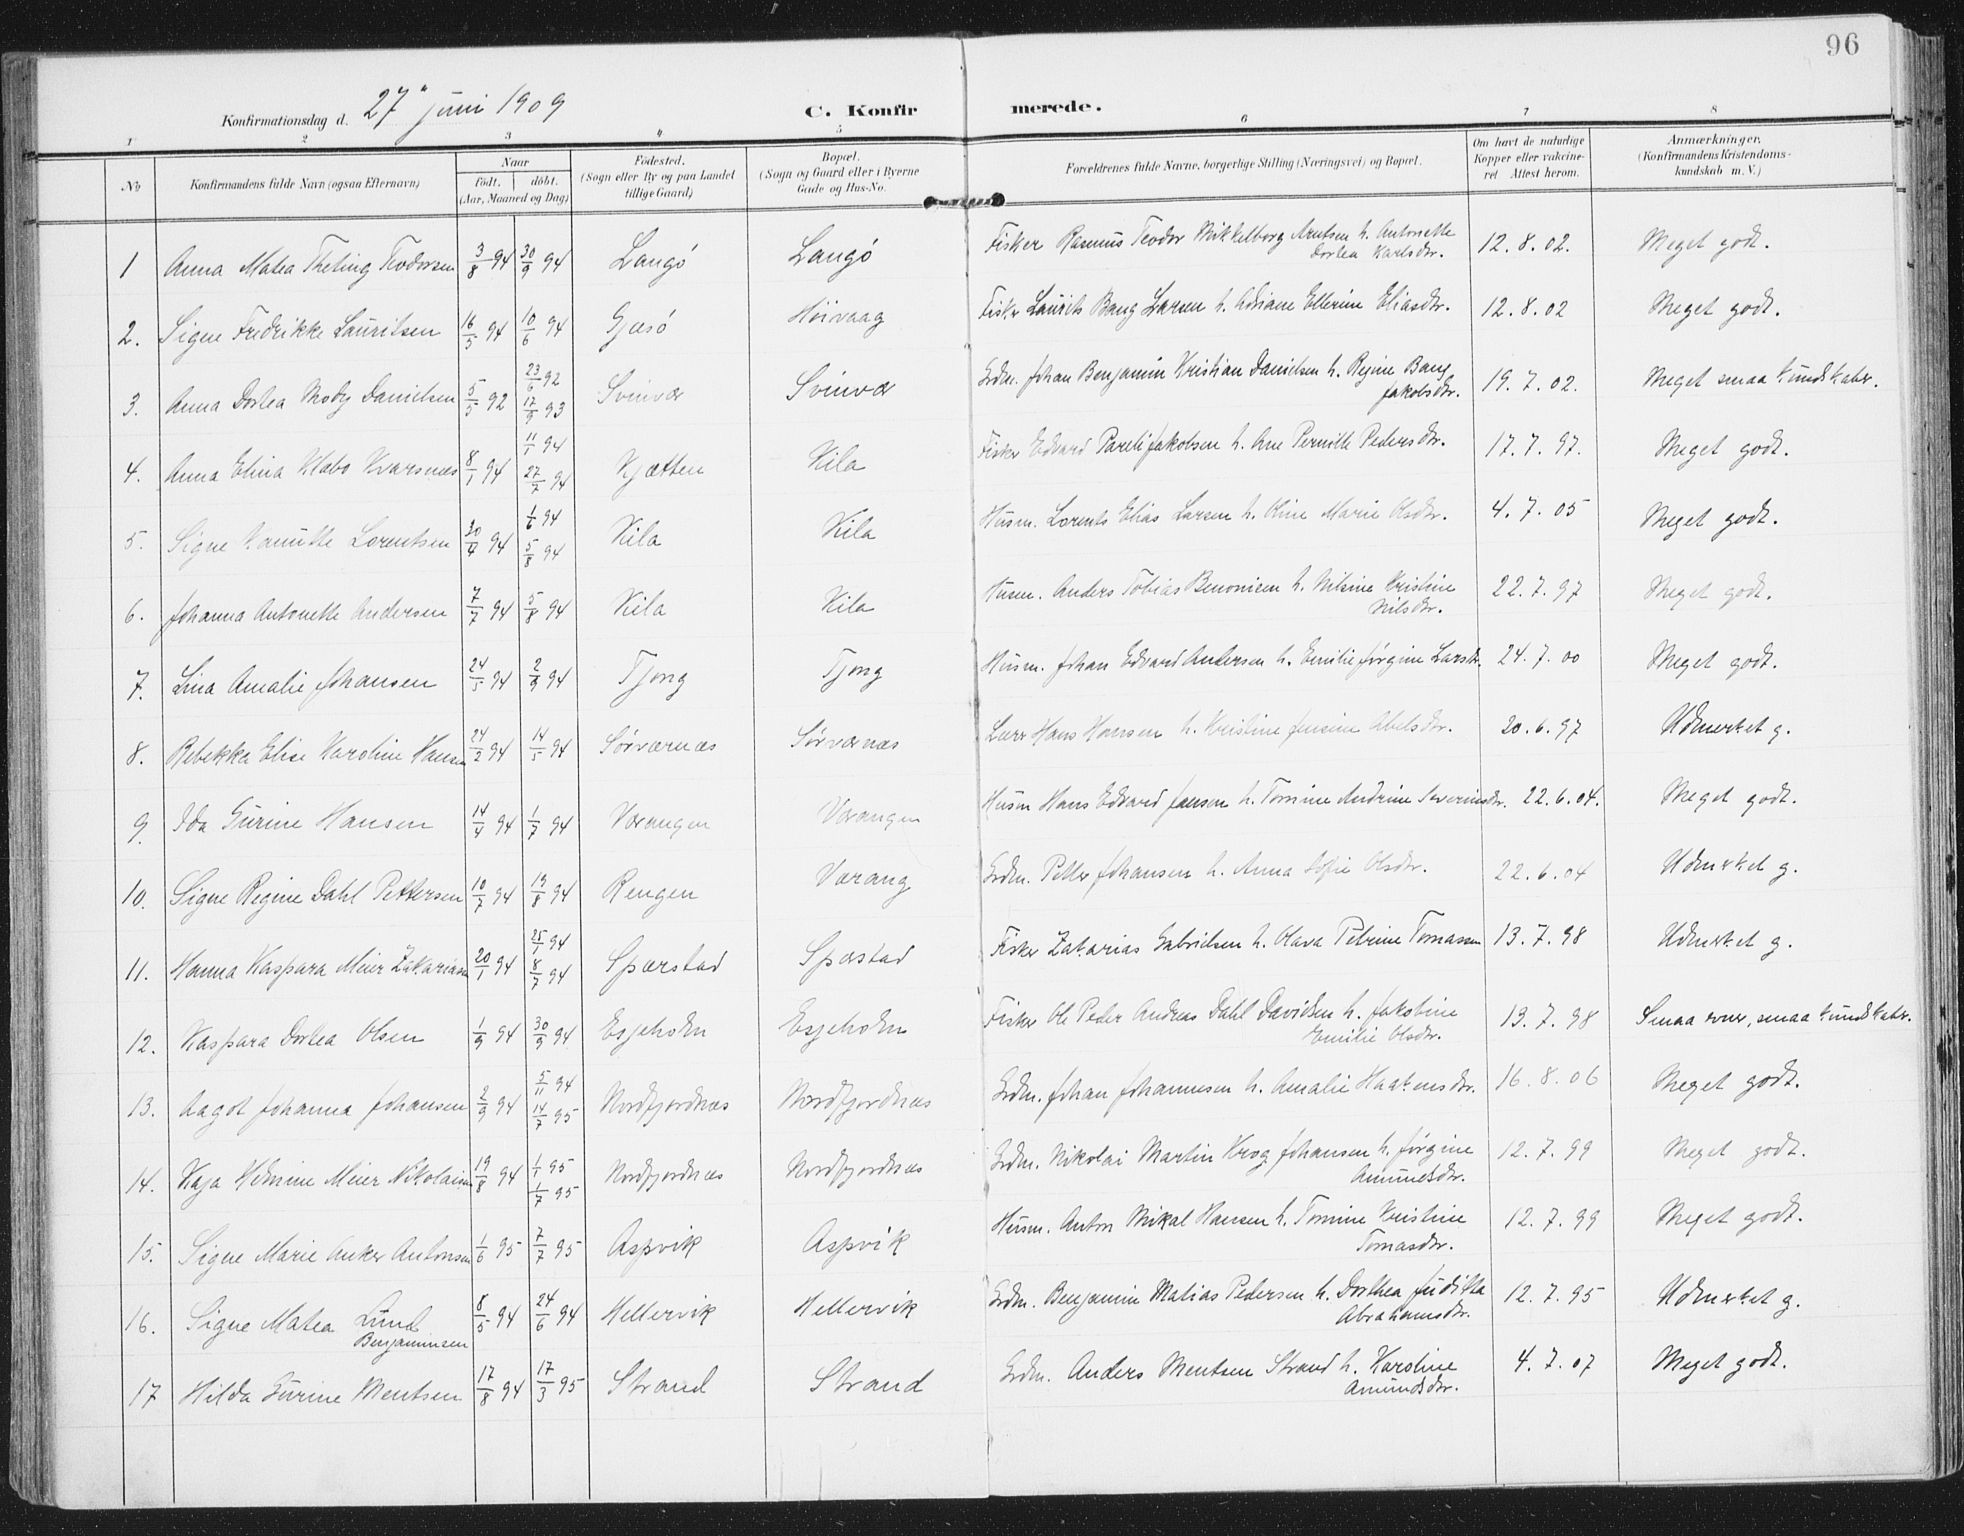 96
Konfirmationsdag d. 27 juni 1909
C. Konfir merede.
1 2 3 4 5 6 7 8
No
Konfirmandens fulde Navn (ogsaa Efternavn)
Naar
født. døbt.
(Aar, Maaned og Dag)
Fødested.
(Sogn eller By og paa Landet
tillige Gaard)
Bopæl.
(Sogn og Gaard eller i Byerne
Gade og Hus-No.
Forældrenes fulde Navne, borgerlige Stilling (Næringsvei) og Bopæl.
Om havt de naturlige
Kopper eller vakcine-
ret Attest herom.
Anmærkninger.
(Konfirmandens Kristendoms-
kundskab m. V.)
1 Anna Matea Theting Teodorsen 3/8 94 30/9 94 Langö Langö Fisker Rasmus Teodor Mikkelborg Arntsen h. Antonette
Dortea Karlsdtr. 12.8.02. Meget godt.
2. Signe Fredrikke Lauritsen 16/5 94 10/6 94 Gjæsö Høivaag Fisker Laurits Bang Larsen h. Adriane Ellerine Eliasdtr. 12.8.02 Meget godt.
3. Anna Dortea Mosby Danielsen 5/5 92 23/6 92
17/9 93 Svinvær Svinvær Grdm. Johan Benjamin Kristian Danielsen h. Regine Bang
Jakobsdtr. 19.7.02. Meget smaa kundskaber.
4. Anna Elina Klabo Kvarsnes 8/1 94 11/1 94
27/7 94 Kjætten Kila Fisker Edvard Pareli Jakobsen h. Ane Pernille Pedersdtr. 17.7.97. Meget godt.
5. Signe Lorentsen 30/4 94 1/6 94
5/8 94 Kila Kila Husm. Lorents Elias Larsen h. Oline Marie Olsdtr. 4.7.05 Meget godt.
6. Johanna Antonette Andersen 7/7 94 5/8 94 Kila Kila Husm. Anders Tobias Benonisen h. Nilsine Kristine
Nilsdtr. 22.7.97 Meget godt.
7. Lina Amalie Johansen 24/5 94 2/9 94 Tjong Tjong Husm. Johan Edvard Andersen h. Emilie Jørgine Larsdtr. 24.7.00 Meget godt.
8. Rebekka Elise Karoline Hansen 24/2 94 14/5 94 Sørværnæs Sørværnæs Lærer Hans Hansen h. Kristine Jensine Abelsdtr. 20.6.97 Udmerket g.
9. Ida Gurine Hansen 14/4 94 1/7 94 Værangen Værangen Husm Hans Edvard Jensen h. Tomine Andrine Severinsdtr. 22.6.04. Meget godt.
10. Signe Regine Dahl Pettersen 10/7 94 19/8 94 Rengen Værang Grdm. Petter Johansen h. Anna Sofie Olsdtr. 22.6.04 Udmerket g.
11. Hanna Kaspara Meier Zakariasen 20/1 94 25/1 94
8/7 94 Spærstad Spæstad Fisker Zakarias Gabrielsen h. Olava Petrine Tomassen 13.7.98 Udmerket g.
12. Kaspara Dortea Olsen 1/9 94 30/9 94 Esjeholm Esjeholm Fisker Ole Peder Andreas Dahl Davidsen h. Jakobine
Emilie Olsdtr. 13.7.98 Smaa evner, smaa kundskaber.
13. Aagot Johanna Johansen 2/9 94 5/11 94
14/7 95 Nordfjordnæs Nordfjordnæs Grdm. Johan Johannesen h. Amalie Haakensdtr. 16.8.06 Meget godt.
14. Kaja Helmine Meier Nikolaisen 19/8 94 1/1 95
1/7 95 Nordfjordnæs Nordfjordnæs Grdm. Nikolai Martin Krog Johansen h. Jørgine
Amundsdtr. 12.7.99 Meget godt.
15. Signe Marie Anker Antonsen 1/6 95 7/7 95 Aspvik Aspvik Husm. Anton Mikal Hansen h. Tomine Kristine
Tomasdtr. 12.7.99 Meget godt.
16. Signe Matea Lund
Benjaminsen 8/5 94 24/6 94 Hellervik Hellervik Grdm. Benjamin Matias Pedersen h. Dorthea Judikta
Abrahamsdtr. 12.7.95 Udmerket g.
17 Hilda Gurine Mentsen 17/8 94 17/3 95 Strand Strand Grdm. Anders Mentsen Strand h. Karoline
Amundsdtr. 4.7.07 Meget godt.